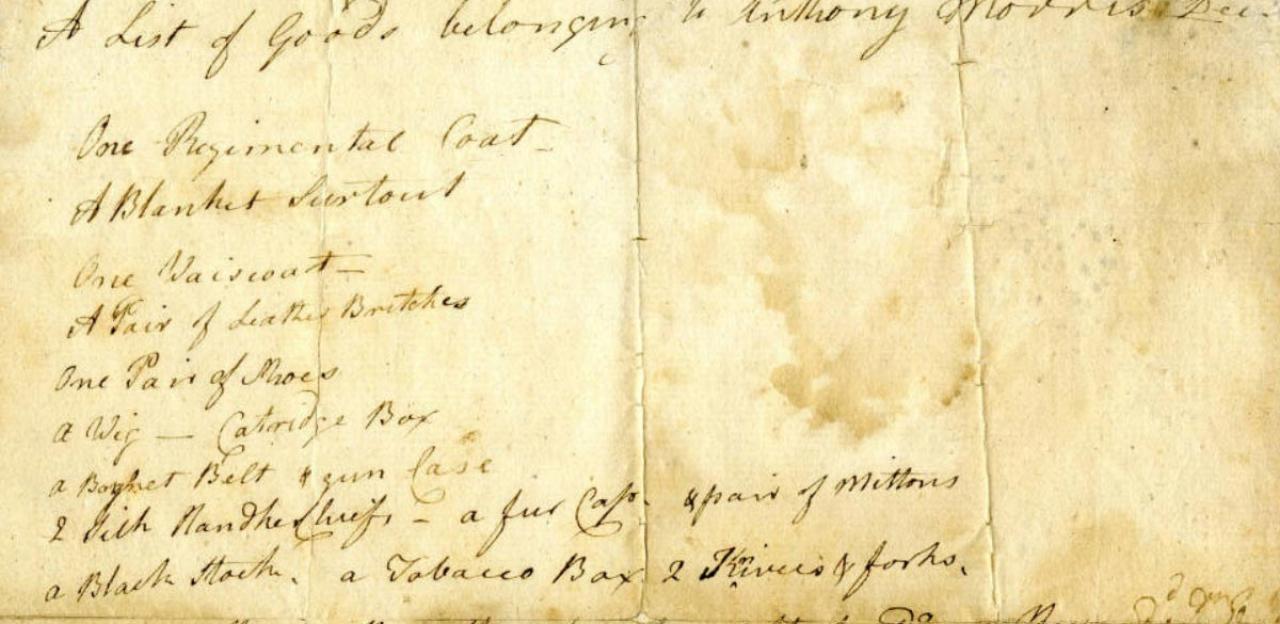 A List of Goods belonging to Anthony Morris
One Regimental Coat -
A Blanket Surtout
One Vaiscoat -
A Pair of Leather Britches
One Pair of Shoes
a Wig — Catridge Box
a Boynet Belt & gun Case
2 Silk Handkerchiefs - a fur Cap. & pair of Mittons
a Black Stock. a Tobacco Box 2 Knives & forks.